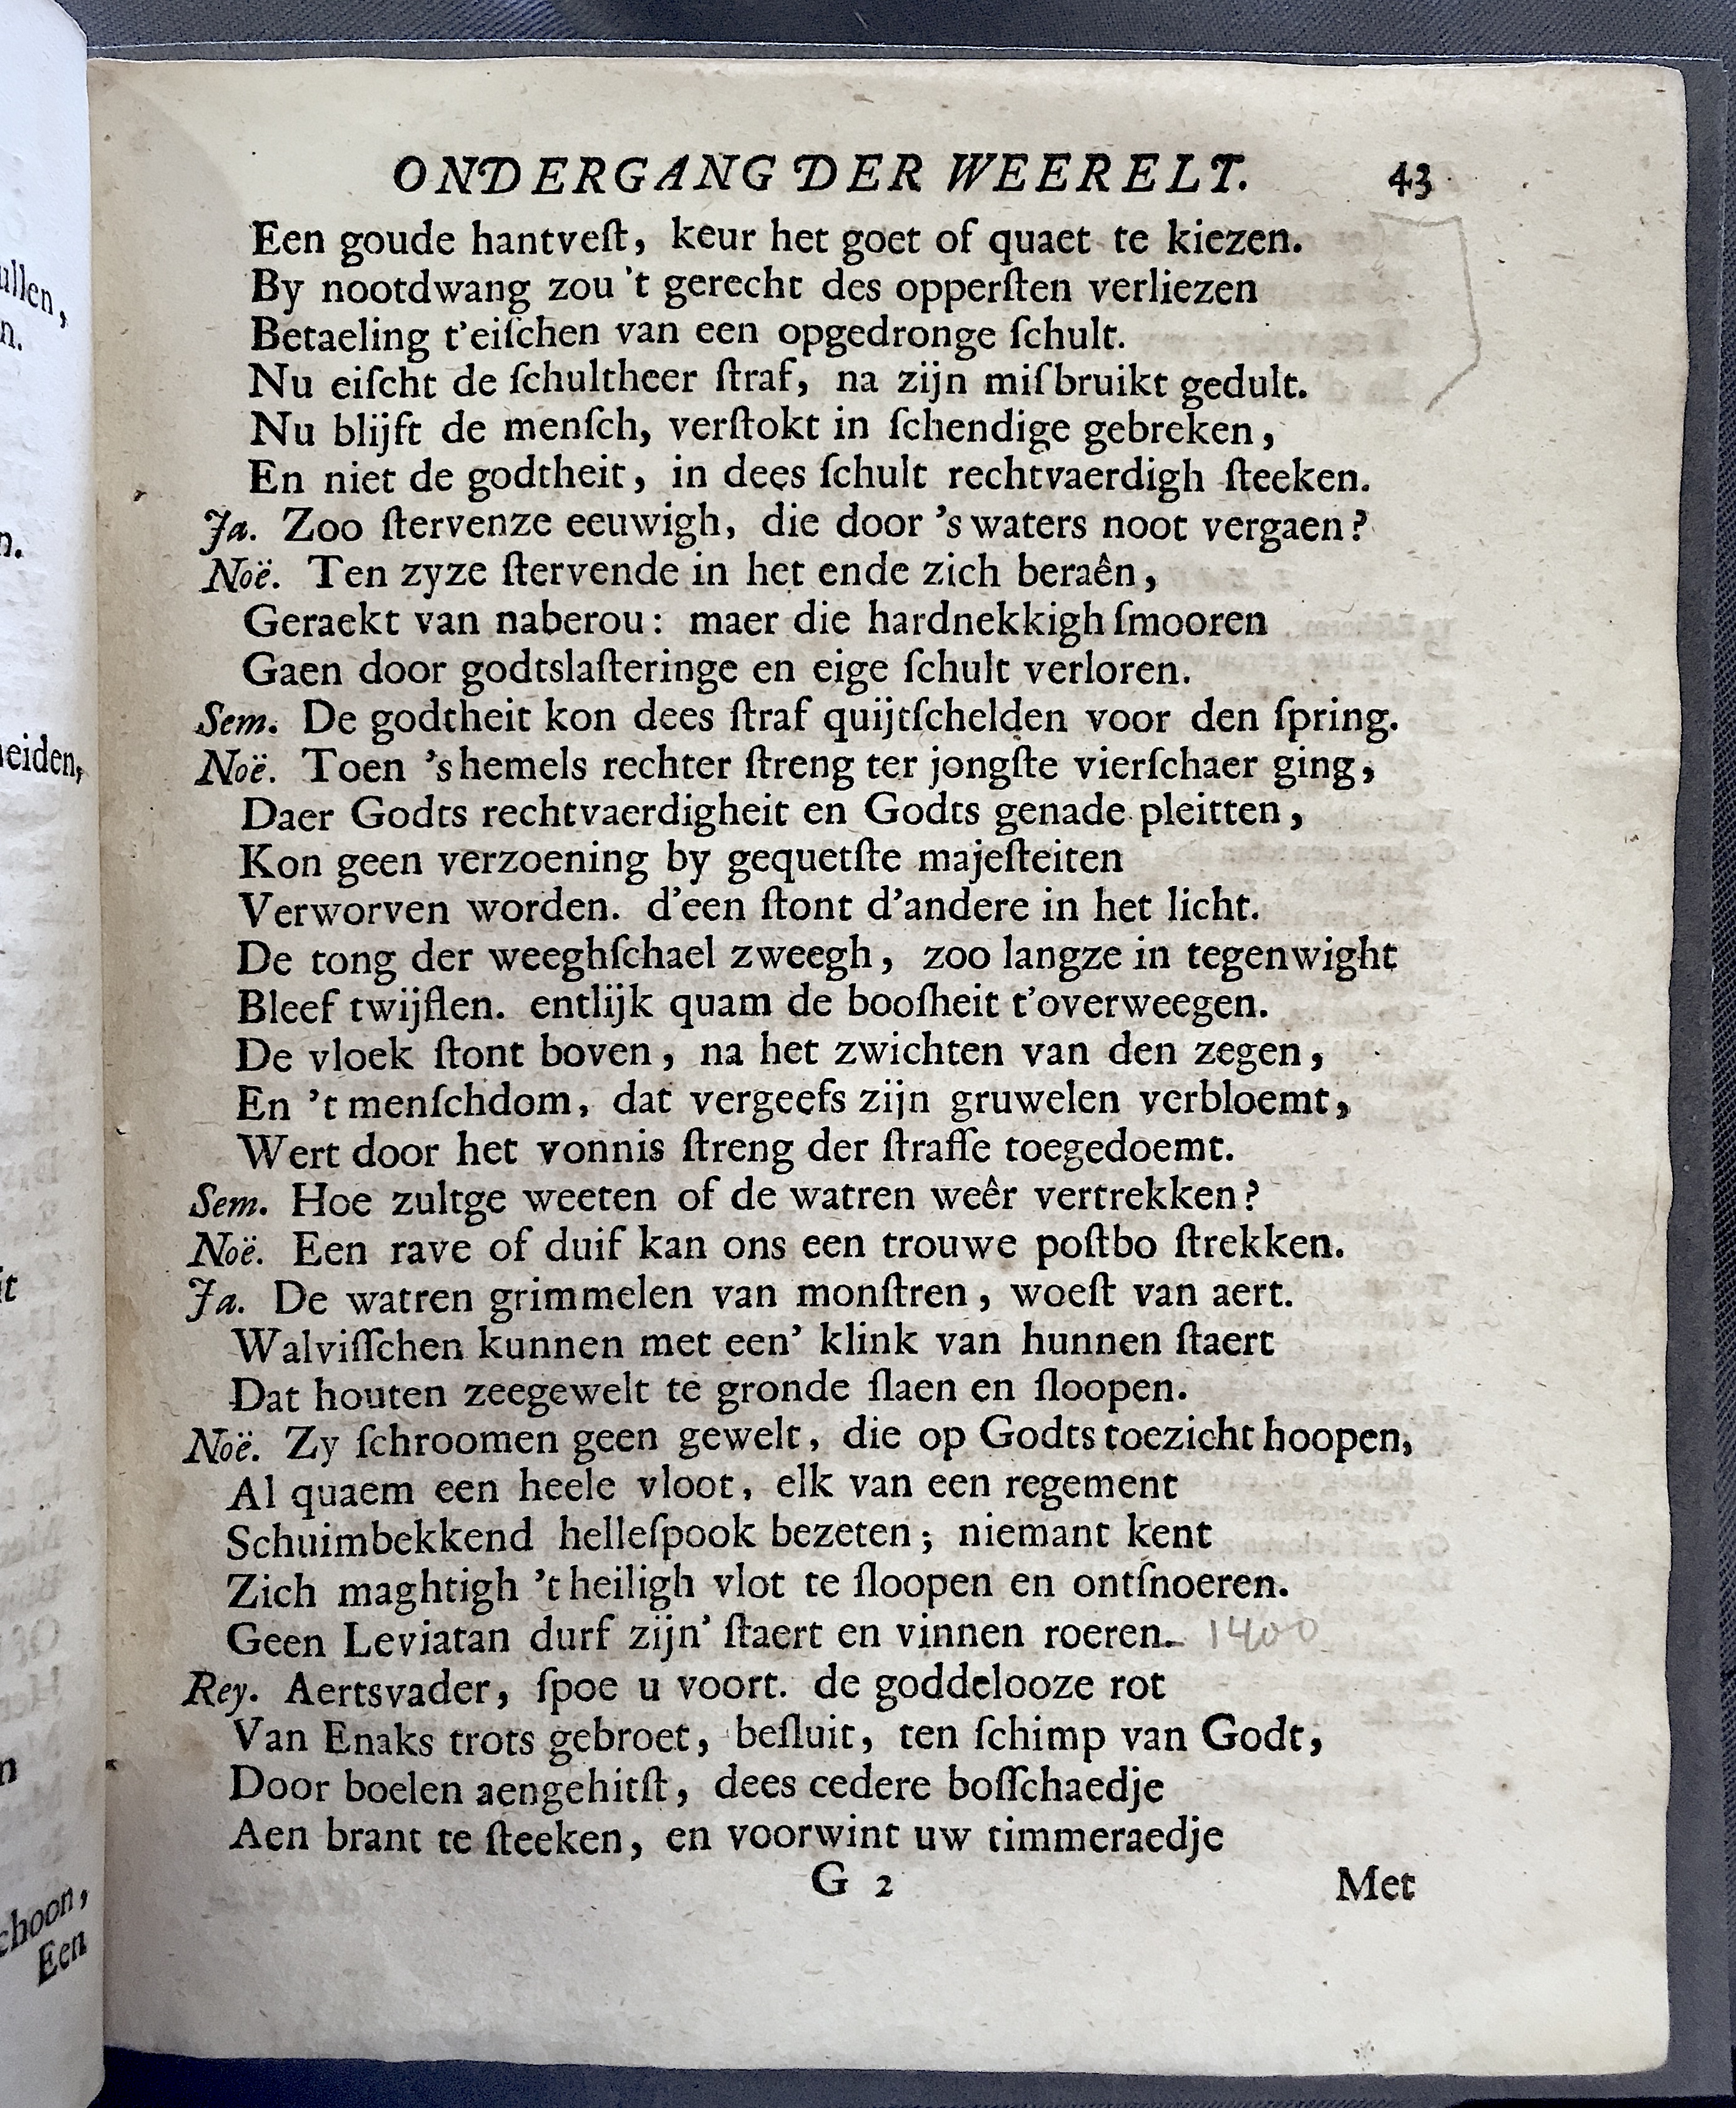 ONDERGANG DER WEERELT. 43
Een goude hantveſt, keur het goet of quaet te kiezen.
By nootdwang zou 't gerecht des opperſten verliezen
Betaeling t'eiſchen van een opgedronge ſchult.
Nu eiſcht de ſchultheer ſtraf, na zijn miſbruikt gedult.
Nu blijft de menſch, verſtokt in ſchendige gebreken,
En niet de godtheit, in dees ſchult rechtvaerdigh ſteeken.
Ja. Zoo ſtervenze eeuwigh, die door 's waters noot vergaen?
Noë. Ten zyze ſtervende in het ende zich beraên,
Geraekt van naberou: maer die hardnekkigh ſmooren
Gaen door godtslaſteringe en eige ſchult verloren.
Sem. De godtheit kon dees ſtraf quijtſchelden voor den ſpring.
Noë. Toen 's hemels rechter ſtreng ter jongſte vierſchaer ging,
Daer Godts rechtvaerdigheit en Godts genade pleitten,
Kon geen verzoening by gequetſte majeſteiten
Verworven worden. d'een ſtont d'andere in het licht.
De tong der weeghſchael zweegh, zoo langze in tegenwight
Bleef twijflen. entlijk quam de booſheit t'overweegen.
De vloek ſtont boven, na het zwichten van den zegen,
En 't menſchdom, dat vergeefs zijn gruwelen verbloemt,
Wert door het vonnis ſtreng der ſtraffe toegedoemt.
Sem. Hoe zultge weeten of de watren weêr vertrekken?
Noë. Een rave of duif kan ons een trouwe poſtbo ſtrekken.
Ja. De watren grimmelen van monſtren, woeſt van aert.
Walviſſchen kunnen met een' klink van hunnen ſtaert
Dat houten zeegewelt te gronde ſlaen en ſloopen.
Noë. Zy ſchroomen geen gewelt, die op Godts toezicht hoopen,
Al quaem een heele vloot, elk van een regement
Schuimbekkend helleſpook bezeten; niemant kent
Zich maghtigh 't heiligh vlot te ſloopen en ontſnoeren.
Geen Leviatan durf zijn' ſtaert en vinnen roeren. 1400
Rey. Aertsvader, ſpoe u voort. de goddelooze rot
Van Enaks trots gebroet, beſluit, ten ſchimp van Godt,
Door boelen aengehitſt, dees cedere boſſchaedje
Aen brant te ſteeken, en voorwint uw timmeraedje
G 2 Met
ullen,
n.
n.
eiden,
it
n
choon,
Een